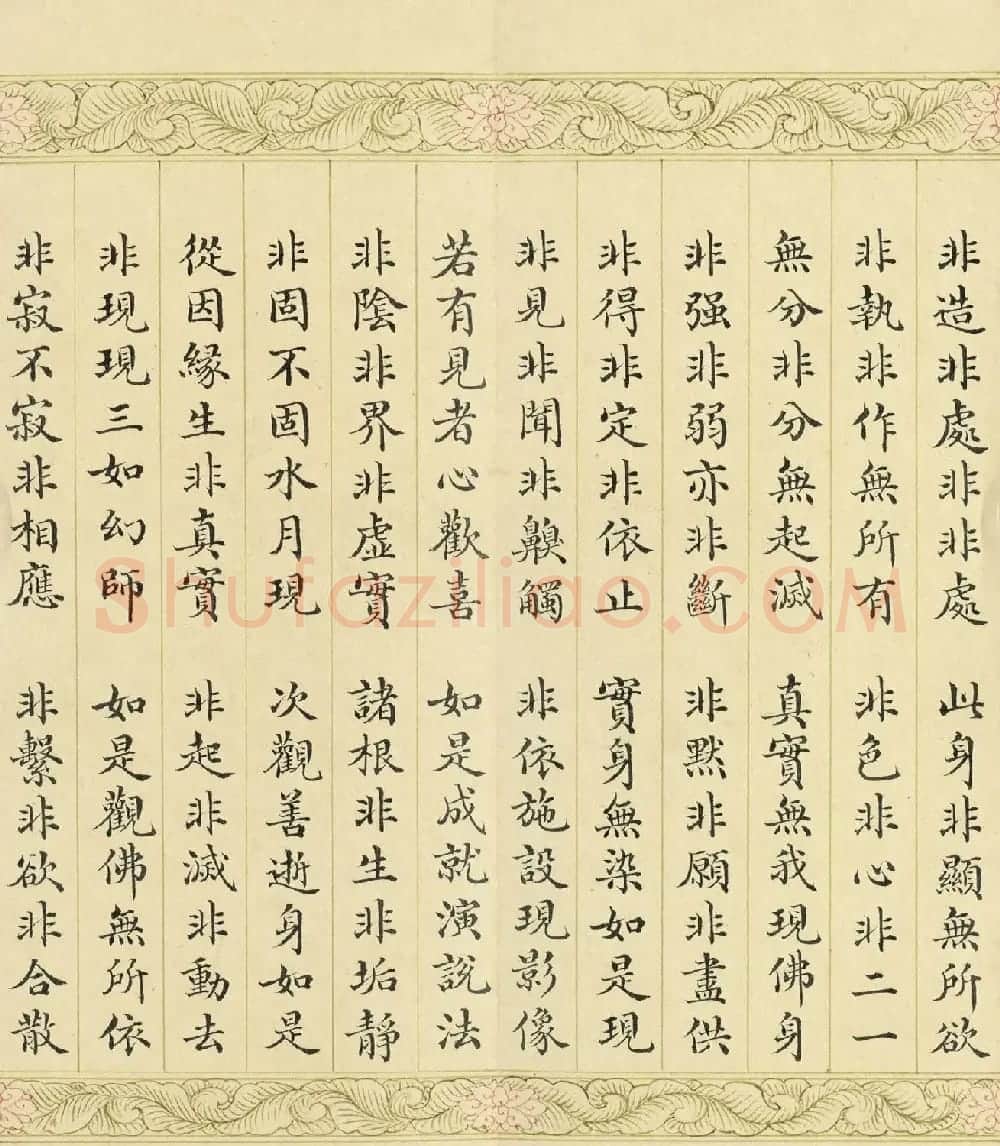 非造非處非非處 此身非顯無所欲
非執非作無所有 非色非心非二一
無分非分無起滅 真實無我現佛身
非强非弱亦非斷 非默非願非盡供
非得非定非依止 實身無染如是現
非見非聞非齅觸 非依施設現影像
若有見者心歡喜 如是成就演說法
非陰非界非虛實 諸根非生非垢靜
非固不固水月現 次觀善逝身如是
從因緣生非真實 非起非滅非動去
非現現三如幻師 如是觀佛無所依
非寂不寂非相應 非繫非欲非合散
Shufaziliao.COM